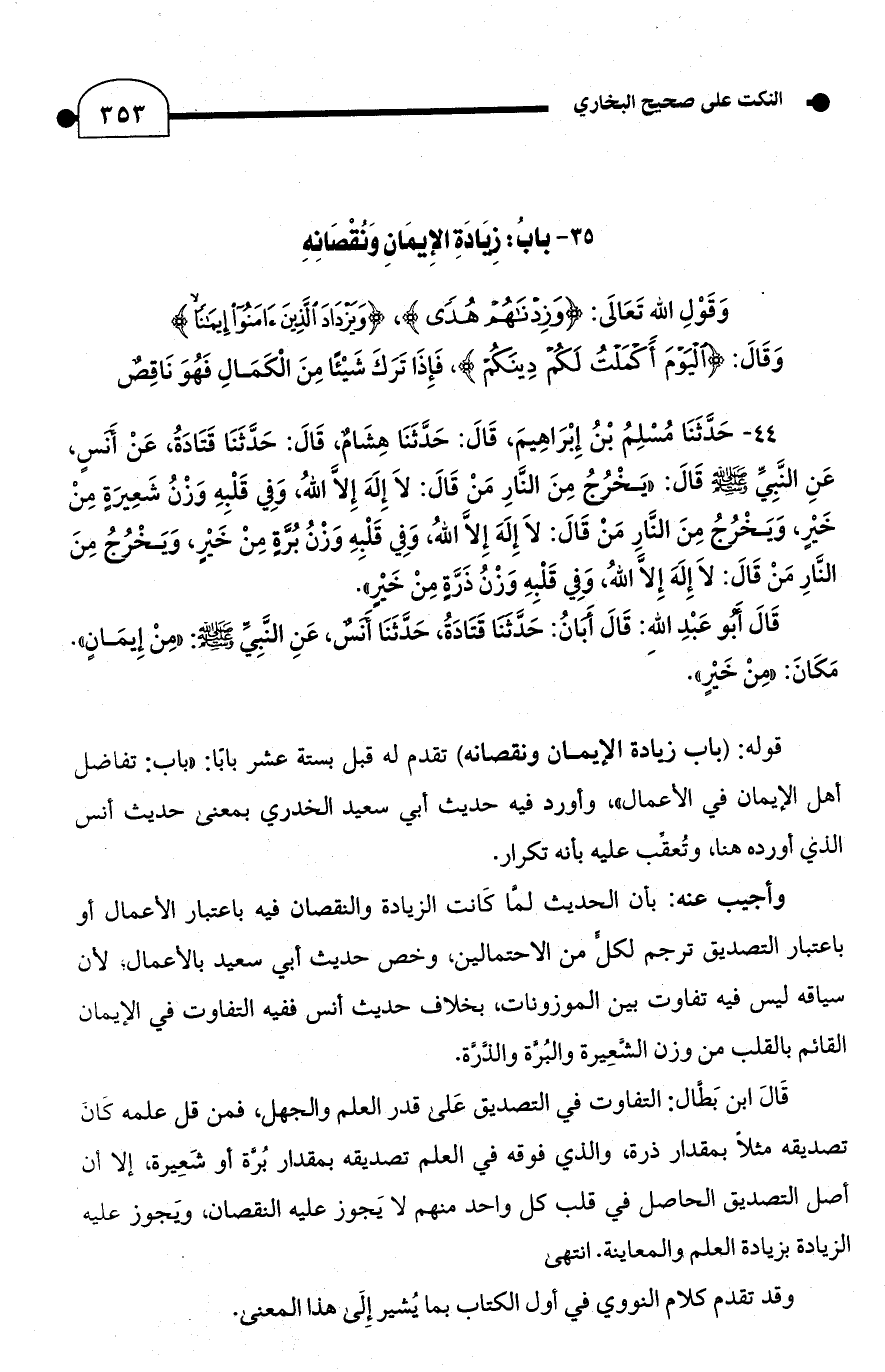 النكت على صحيح البخاري
٣٥٣
٣٥- بابُ: زِيَادَةِ الإِيمَانِ وَنُقْصَانِهِ
وَقَوْلِ الله تَعَالَى: ﴿وَزِدْنَٰهُمْ هُدًى﴾، ﴿وَيَزْدَادَ ٱلَّذِينَ ءَامَنُوٓا۟ إِيمَٰنًا ۙ﴾
وَقَالَ: ﴿ٱلْيَوْمَ أَكْمَلْتُ لَكُمْ دِينَكُمْ﴾، فَإِذَا تَرَكَ شَيْئًا مِنَ الْكَمَالِ فَهُوَ نَاقِصٌ
٤٤- حَدَّثَنَا مُسْلِمُ بْنُ إِبْرَاهِيمَ، قَالَ: حَدَّثَنَا هِشَامٌ، قَالَ: حَدَّثَنَا قَتَادَةُ، عَنْ أَنَسٍ،
عَنِ النَّبِيِّ ﷺ قَالَ: «يَخْرُجُ مِنَ النَّارِ مَنْ قَالَ: لاَ إِلَهَ إِلاَّ اللهُ، وَفِي قَلْبِهِ وَزْنُ شَعِيرَةٍ مِنْ
خَيْرٍ، وَيَخْرُجُ مِنَ النَّارِ مَنْ قَالَ: لاَ إِلَهَ إِلاَّ اللهُ، وَفِي قَلْبِهِ وَزْنُ بُرَّةٍ مِنْ خَيْرٍ، وَيَخْرُجُ مِنَ
النَّارِ مَنْ قَالَ: لاَ إِلَهَ إِلاَّ اللهُ، وَفِي قَلْبِهِ وَزْنُ ذَرَّةٍ مِنْ خَيْرٍ».
قَالَ أَبُو عَبْدِ اللهِ: قَالَ أَبَانُ: حَدَّثَنَا قَتَادَةُ، حَدَّثَنَا أَنَسٌ، عَنِ النَّبِيِّ ﷺ: «مِنْ إِيمَانٍ».
مَكَانَ: «مِنْ خَيْرٍ».
قوله: (باب زيادة الإيمان ونقصانه) تقدم له قبل بستة عشر بابًا: «باب: تفاضل
أهل الإيمان في الأعمال»، وأورد فيه حديث أبي سعيد الخدري بمعنى حديث أنس
الذي أورده هنا، وتُعقِّب عليه بأنه تكرار.
وأجيب عنه: بأن الحديث لمَّا كَانت الزيادة والنقصان فيه باعتبار الأعمال أو
باعتبار التصديق ترجم لكلٍّ من الاحتمالين، وخص حديث أبي سعيد بالأعمال؛ لأن
سياقه ليس فيه تفاوت بين الموزونات، بخلاف حديث أنس ففيه التفاوت في الإيمان
القائم بالقلب من وزن الشَّعِيرة والبُرَّة والذَّرَّة.
قَالَ ابن بَطَّال: التفاوت في التصديق عَلىٰ قدر العلم والجهل، فمن قل علمه كَانَ
تصديقه مثلاً بمقدار ذرة، والذي فوقه في العلم تصديقه بمقدار بُرَّة أو شَعِيرة، إلا أن
أصل التصديق الحاصل في قلب كل واحد منهم لا يَجوز عليه النقصان، ويَجوز عليه
الزيادة بزيادة العلم والمعاينة. انتهىٰ
وقد تقدم كلام النووي في أول الكتاب بما يُشير إِلَىٰ هذا المعنىٰ.